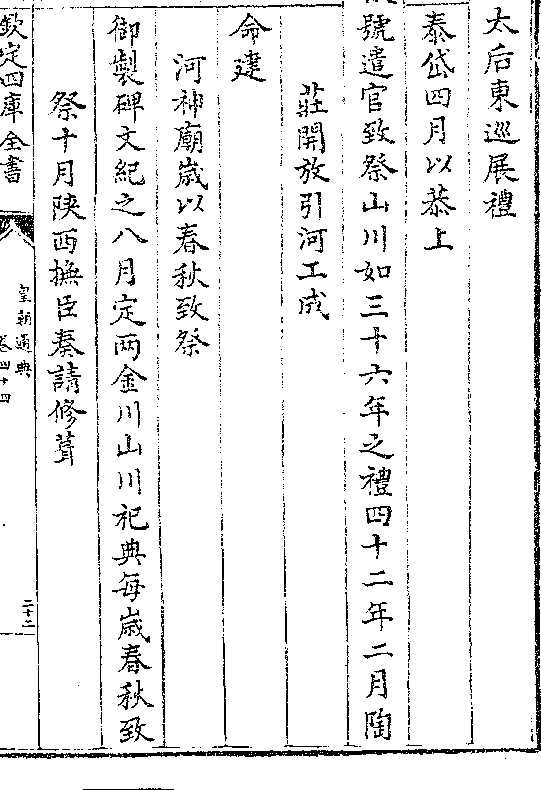 太后東巡展禮
泰岱四月以恭上
號遣官致祭山川如三十六年之禮四十二年二月陶
莊開放引河工成
命建
河神廟嵗以春秋致祭
御製碑文紀之八月定兩金川山川祀典每嵗春秋致
祭十月陜西撫臣奏請修葺
欽定四庫全書
皇朝通典
卷四十四
二十二